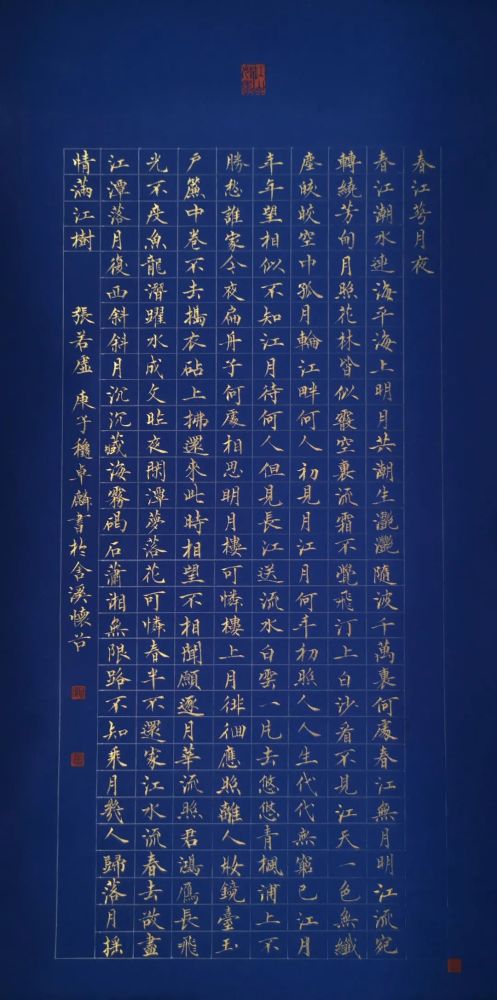 春江花月夜
春江潮水連海平海上明月共潮生灧灧隨波千萬裏何處春江無月明江流宛
轉繞芳甸月照花林皆似霰空裏流霜不覺飛汀上白沙看不見江天一色無纖
塵皎皎空中孤月輪江畔何人初見月江月何年初照人人生代代無窮已江月
年年望相似不知江月待何人但見長江送流水白雲一片去悠悠青楓浦上不
勝愁誰家今夜扁舟子何處相思明月樓可憐樓上月徘徊應照離人妝鏡臺玉
戶簾中卷不去擣衣砧上拂還來此時相望不相聞願逐月華流照君鴻鴈長飛
光不度魚龍潛躍水成文昨夜閑潭夢落花可憐春半不還家江水流春去欲盡
江潭落月復西斜斜月沉沉藏海霧碣石瀟湘無限路不知乘月幾人歸落月搖
情滿江樹
張若虛 庚子穐卓麟書於含溪懷